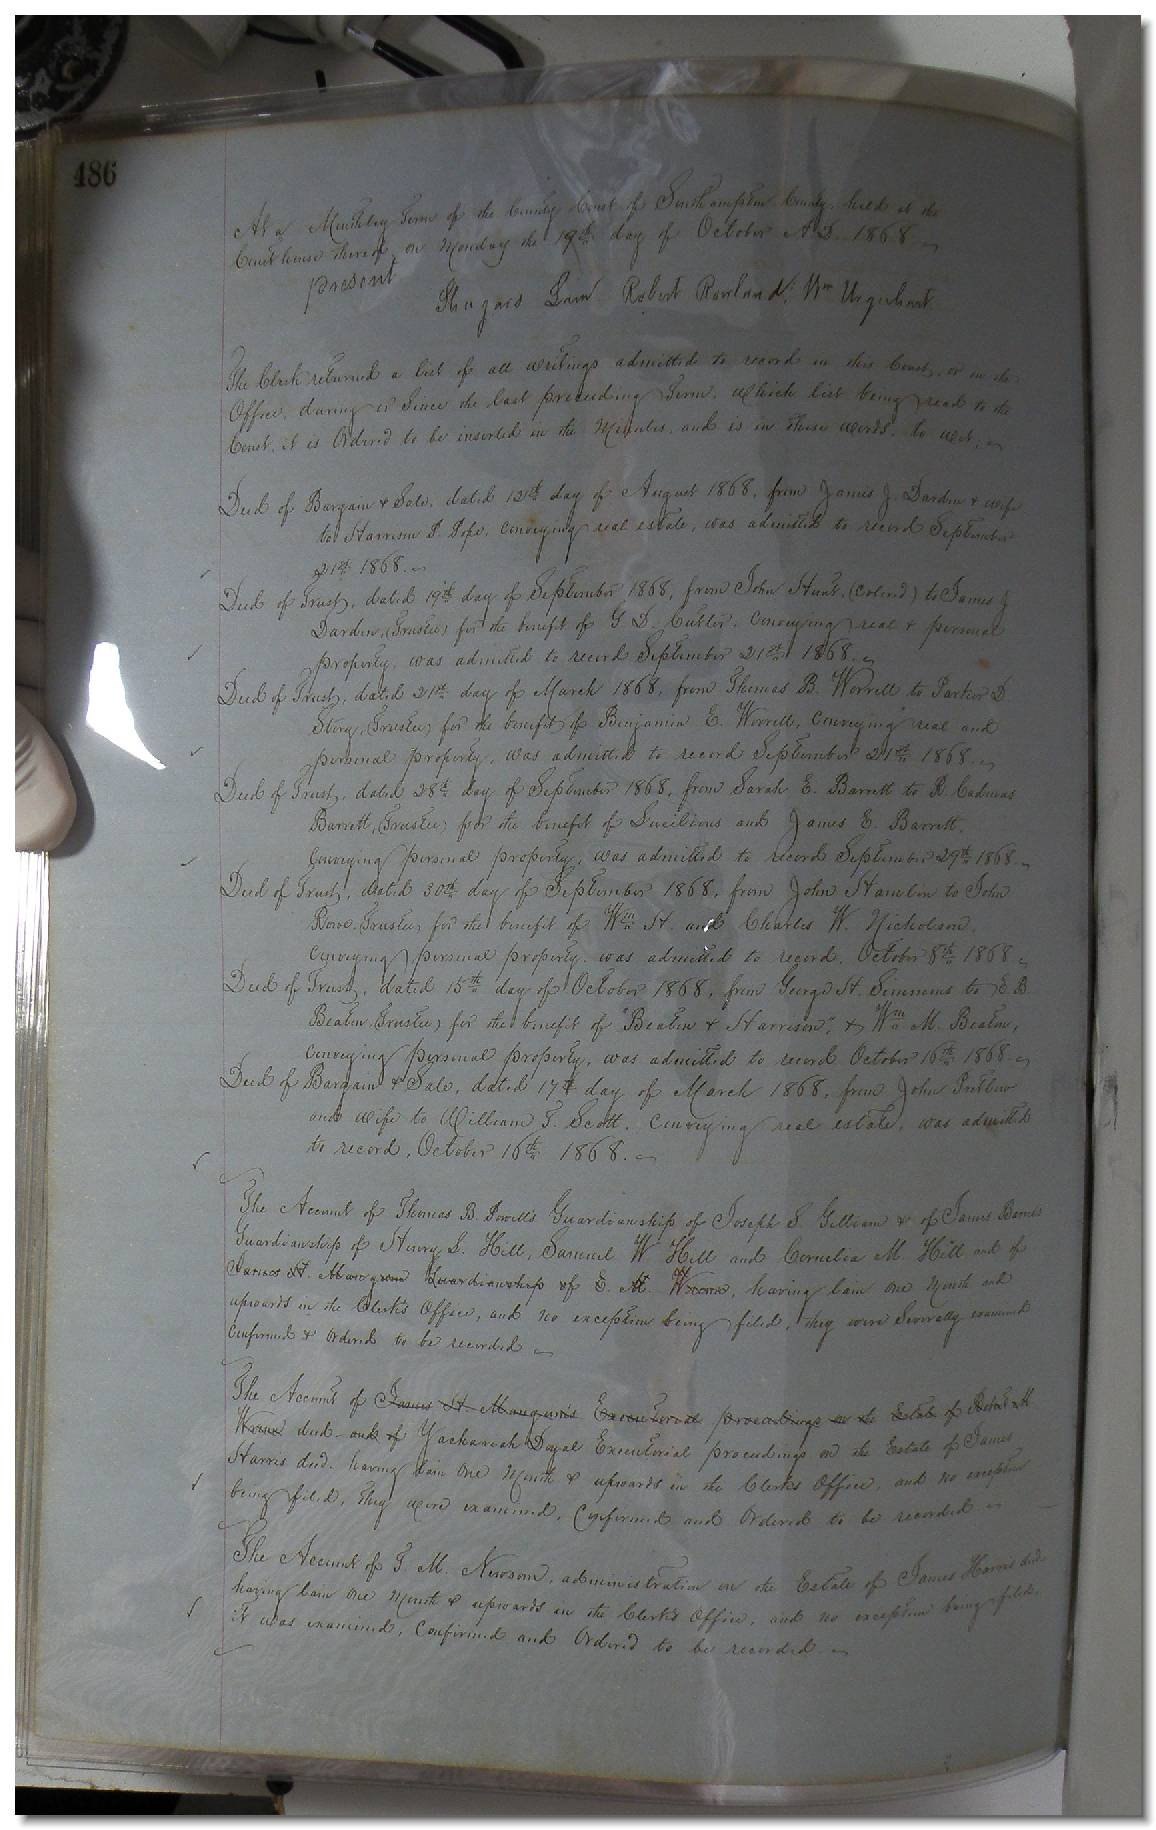 486
At a Monthly Term of the County Court of Southampton County, held at the
Court house thereof, on Monday the 19th day of October A.D. 1868.
present
Robert Rowland, Wm Urquhart
The Clerk returned a list of all writings admitted to record in this Court, or in the
Office, during or Since the last preceeding Term, which list being read to the
Court, it is Ordered to be inserted in the Minutes, and is in these words, to wit,
Deed of Bargain & Sale, dated 12th day of August 1868, from James J. Darden & wife
to Harrison P. Pope, conveying real estate, was admitted to record September
21st 1868.
Deed of Trust, dated 19th day of September 1868, from John Hunt, (colored) to James J
Darden, (Trustee) for the benefit of G D. Cutler, conveying real & personal
property, was admitted to record September 21st 1868.
Deed of Trust, dated 21st day of March 1868, from Thomas B. Worrell to Parker D
Story, (Trustee) for the benefit of Benjamin E. Worrell, conveying real and
personal property, was admitted to record September 21st 1868.
Deed of Trust, dated 28th day of September 1868, from Sarah E. Barrett to R Cadmus
Barrett, (Trustee) for the benefit of and James E. Barrett,
Conveying personal property, was admitted to record September 29th 1868.
Deed of Trust, dated 30th day of September 1868, from John Hamlin to John
Rowe, (Trustee) for the benefit of Wm H. and Charles W. Nicholson,
Conveying personal property, was admitted to record, October 8th 1868
Deed of Trust, dated 15th day of October 1868, from George H. Simmons to E B
Beaton, (Trustee) for the benefit of "Beaton & Harrison", & Wm M. Beaton,
conveying personal property, was admitted to record October 16th 1868.
Deed of Bargain & Sale, dated 17th day of March 1868, from John Pretlow
and wife to William T. Scott, conveying real estate, was admitted
to record, October 16th 1868.
The Account of Thomas B. Guardianship of Joseph S. Gilliam & of James Barnes
Guardianship of Henry L. Hill, Samuel W Hill and Cornelia M. Hill and of
James H. Mangum Guardianship of E. M. having lain one Month and
upwards in the Clerk's Office, and no exception being filed, they were Severally examined
Confirmed & Ordered to be recorded
The Account of James H. Executorial proceedings on the Estate of
decd and of Zachariah Executorial proceedings on the Estate of James
Harris decd. having lain One Month & upwards in the Clerks Office, and no exception
being filed, They were examined, Confirmed and Ordered to be recorded
The Account of T. M. Newsom, administration on the Estate of James Harris decd.
having lain One Month & upwards in the Clerk's Office, and no exception being filed,
it was examined, Confirmed and Ordered to be recorded